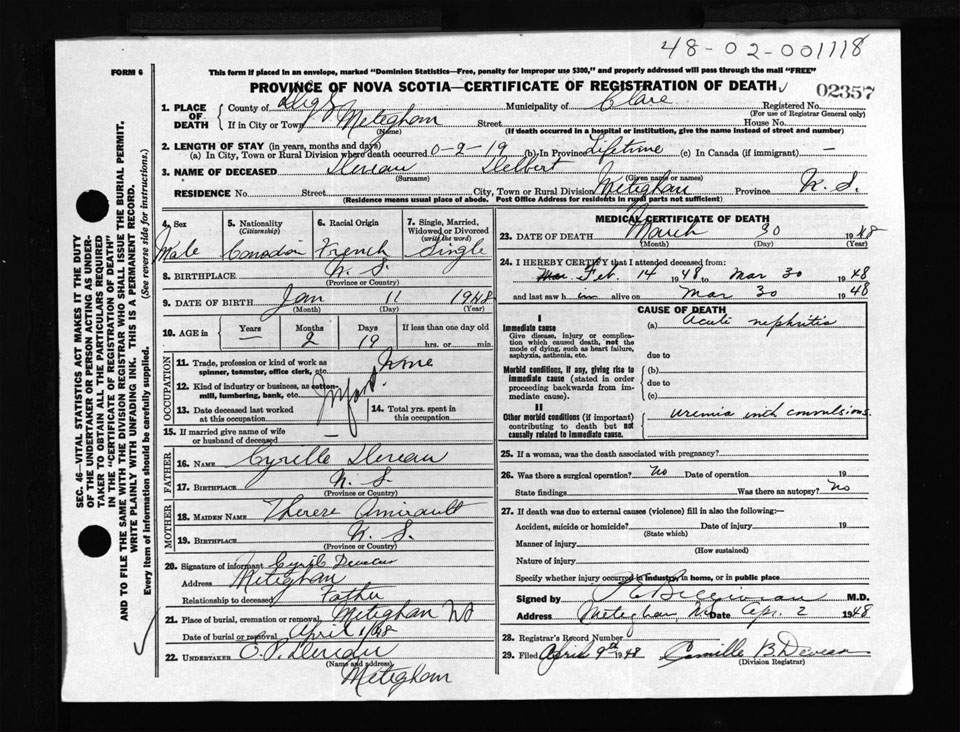 48-02-001118
FORM 6
This form if placed in an envelope, marked "Dominion Statistics—Free, penalty for improper use $300," and properly addressed will pass through the mail "FREE"
PROVINCE OF NOVA SCOTIA—CERTIFICATE OF REGISTRATION OF DEATH
02357
1. PLACE OF DEATH
County of Digby Municipality of Clare Registered No.
(For use of Registrar General only)
If in City or Town Meteghan Street House No.
(Name) (If death occurred in a hospital or institution, give the name instead of street and number)
2. LENGTH OF STAY (in years, months and days)
(a) In City, Town or Rural Division where death occurred 0-2-19 (b) In Province Lifetime (c) In Canada (if immigrant) —
3. NAME OF DECEASED Deveau Delbert
(Surname) (Given name or names)
RESIDENCE No. Street City, Town or Rural Division Meteghan Province N.S.
(Residence means usual place of abode. Post Office Address for residents in rural parts not sufficient)
4. Sex Male
5. Nationality (Citizenship) Canadian
6. Racial Origin French
7. Single, Married, Widowed or Divorced (write the word) Single
8. BIRTHPLACE N.S.
(Province or Country)
9. DATE OF BIRTH Jan 11 1948
(Month) (Day) (Year)
10. AGE in Years — Months 2 Days 19 If less than one day old
hrs. or min.
OCCUPATION
11. Trade, profession or kind of work as spinner, teamster, office clerk, etc. None
12. Kind of industry or business, as cotton-mill, lumbering, bank, etc. Infant
13. Date deceased last worked at this occupation
14. Total yrs. spent in this occupation
15. If married give name of wife or husband of deceased —
FATHER
16. NAME Cyrille Deveau
17. BIRTHPLACE N.S.
(Province or Country)
MOTHER
18. MAIDEN NAME Therese Amirault
19. BIRTHPLACE N.S.
(Province or Country)
20. Signature of informant Cyril Deveau
Address Meteghan
Relationship to deceased Father
21. Place of burial, cremation or removal Meteghan NS
Date of burial or removal April 1/48
22. UNDERTAKER E.P. Deveau
(Name and address)
Meteghan
MEDICAL CERTIFICATE OF DEATH
23. DATE OF DEATH March 30 1948
(Month) (Day) (Year)
24. I HEREBY CERTIFY that I attended deceased from:
Mar. Feb. 14 1948 to Mar 30 1948
and last saw h im alive on Mar 30 1948
CAUSE OF DEATH
I
Immediate cause
Give disease, injury or complication which caused death, not the mode of dying, such as heart failure, asphyxia, asthenia, etc.
(a) Acute nephritis
due to
Morbid conditions, if any, giving rise to immediate cause (stated in order proceeding backwards from immediate cause).
(b)
due to
(c)
II
Other morbid conditions (if important) contributing to death but not causally related to immediate cause.
uremia with convulsions.
25. If a woman, was the death associated with pregnancy?
26. Was there a surgical operation? No Date of operation 19
State findings Was there an autopsy? No
27. If death was due to external causes (violence) fill in also the following:—
Accident, suicide or homicide? Date of injury 19
(State which)
Manner of injury
(How sustained)
Nature of injury
Specify whether injury occurred in industry, in home, or in public place
Signed by M.D.
Address Meteghan, NS Date Apr. 2 1948
28. Registrar's Record Number
29. Filed April 9th 1948 Camille B Deveau
(Division Registrar)
SEC. 46—VITAL STATISTICS ACT MAKES IT THE DUTY
OF THE UNDERTAKER OR PERSON ACTING AS UNDER-
TAKER TO OBTAIN ALL THE PARTICULARS REQUIRED
IN THE "CERTIFICATE OF REGISTRATION OF DEATH"
AND TO FILE THE SAME WITH THE DIVISION REGISTRAR WHO SHALL ISSUE THE BURIAL PERMIT.
WRITE PLAINLY WITH UNFADING INK. THIS IS A PERMANENT RECORD.
Every item of information should be carefully supplied. (See reverse side for instructions.)